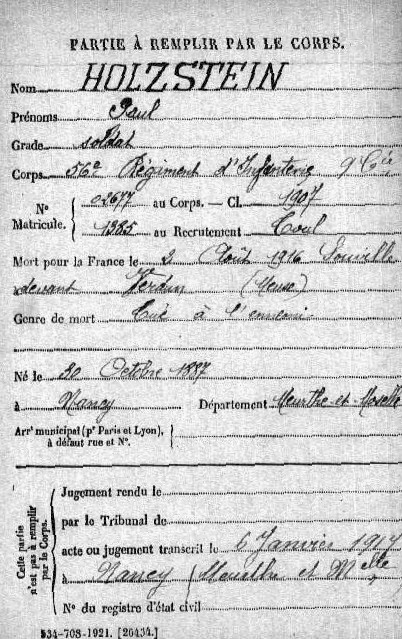 PARTIE À REMPLIR PAR LE CORPS.
Nom HOLZSTEIN
Prénoms Paul
Grade soldat
Corps 56e Régiment d'Infanterie 9e Cie
N° Matricule. { 02677 au Corps. — Cl. 1907
1385 au Recrutement Toul
Mort pour la France le 2 Août 1916 Souville
devant Verdun (Meuse)
Genre de mort Tué à l'ennemi
Né le 30 Octobre 1887
à Nancy Département Meurthe-et-Moselle
Arrt municipal (pr Paris et Lyon),
à défaut rue et N°.
Cette partie
n'est pas à remplir
par le Corps.
Jugement rendu le
par le Tribunal de
acte ou jugement transcrit le 6 Janvier 1917
à Nancy (Meurthe et Melle
N° du registre d'état civil
534-708-1921. [26434.]